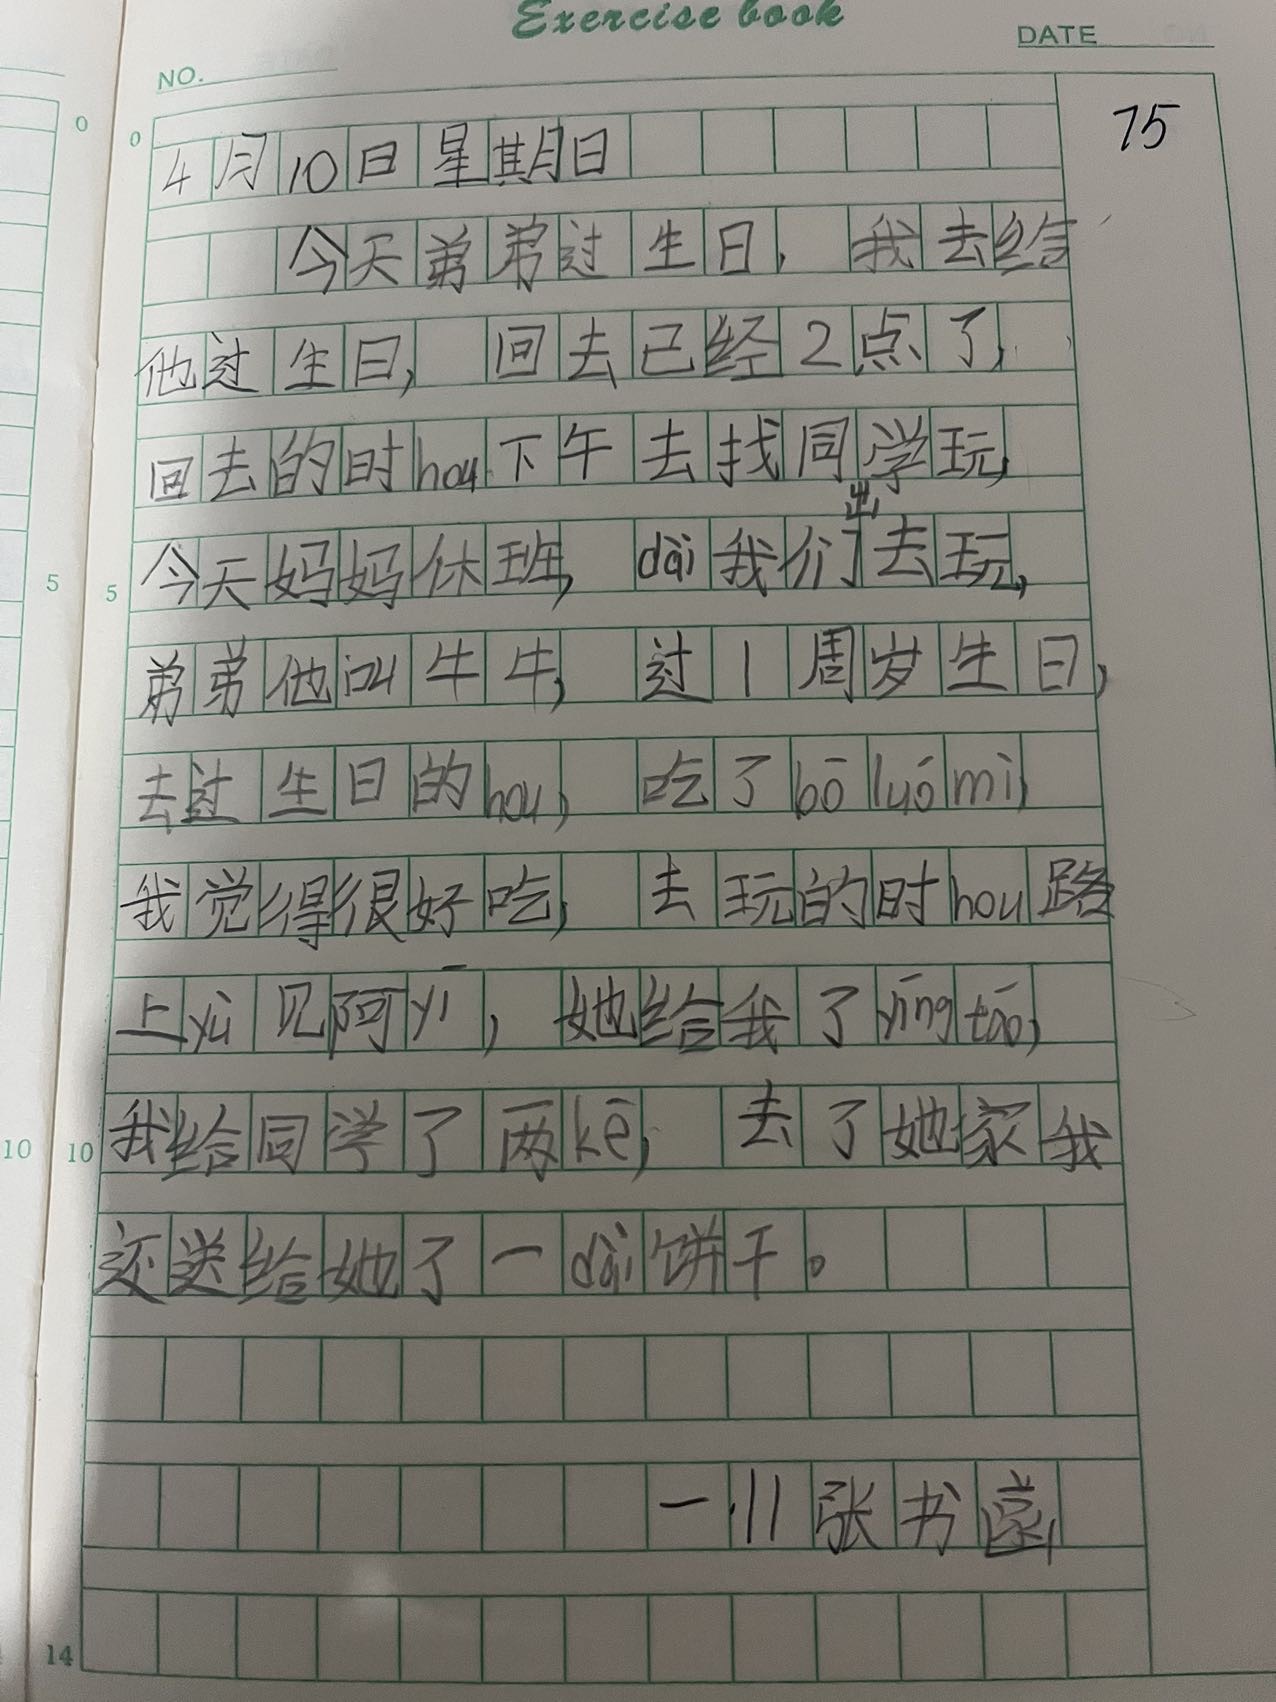 Exercise book
NO.
DATE
75
4月10日星期日
今天弟弟过生日，我去给
他过生日，回去已经2点了，
回去的时hou下午去找同学玩，
今天妈妈休班，dài我们出去玩，
弟弟他叫牛牛，过1周岁生日，
去过生日的hou，吃了bō luó mì，
我觉得很好吃，去玩的时hou路
上yù见阿yí，她给我了yīng táo，
我给同学了两kē，去了她家我
还送给她了一dài饼干。
一.11张书
0
0
5
5
10
10
14